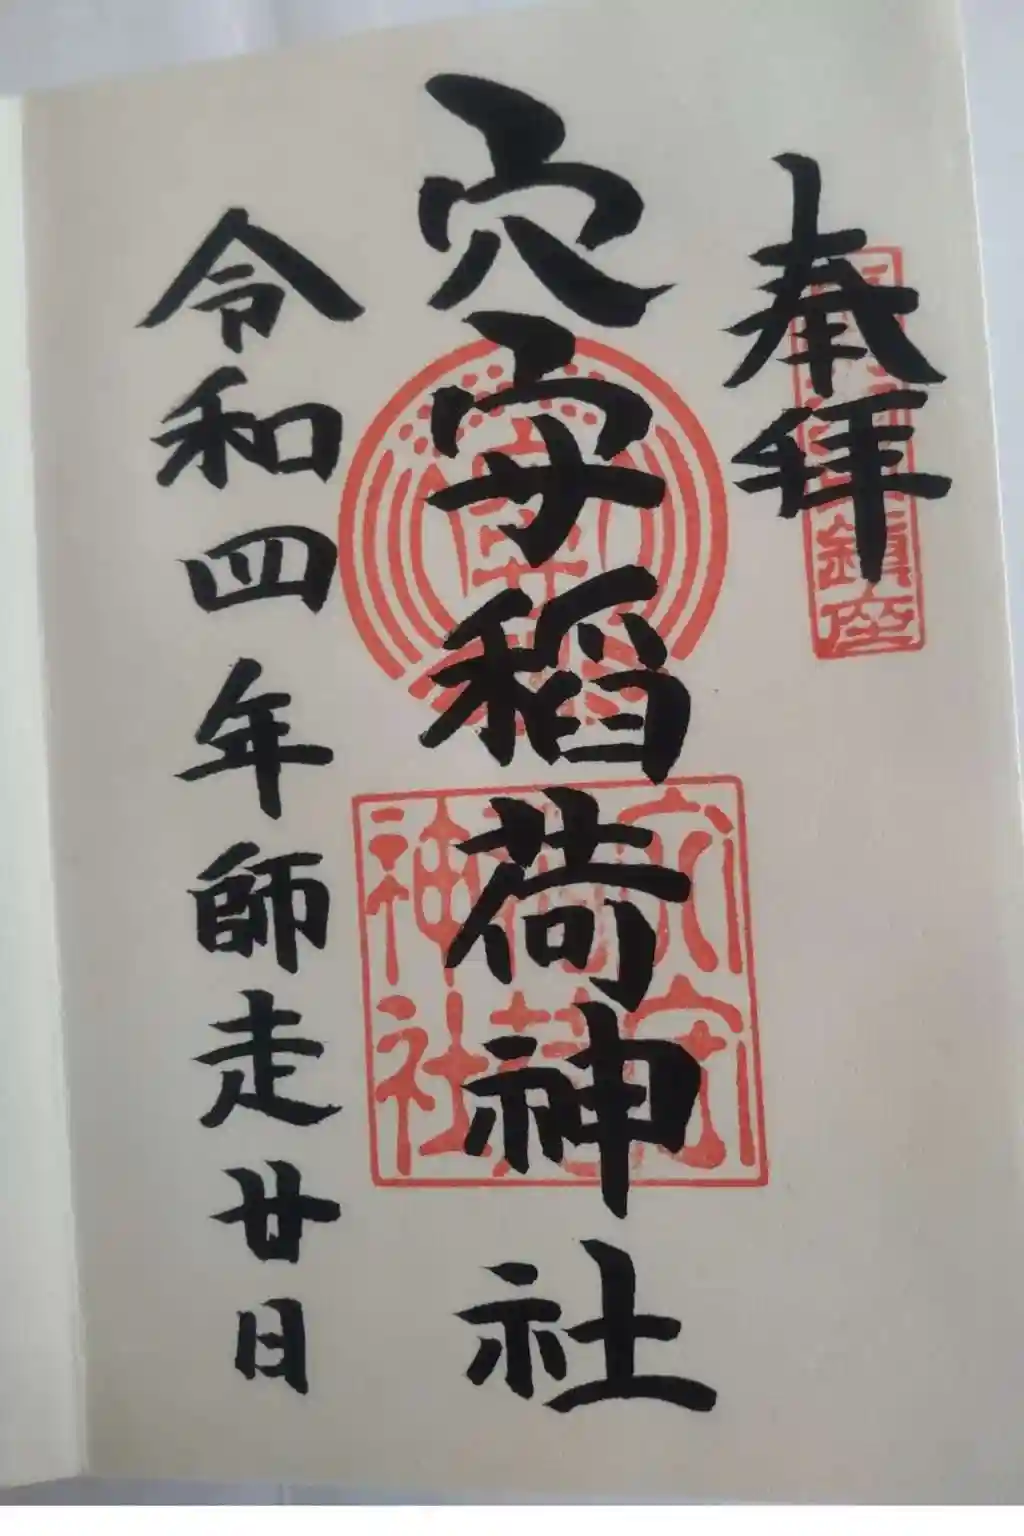 奉拝
穴守稲荷神社
令和四年師走廿日
鎮座
穴守
稲荷
神社